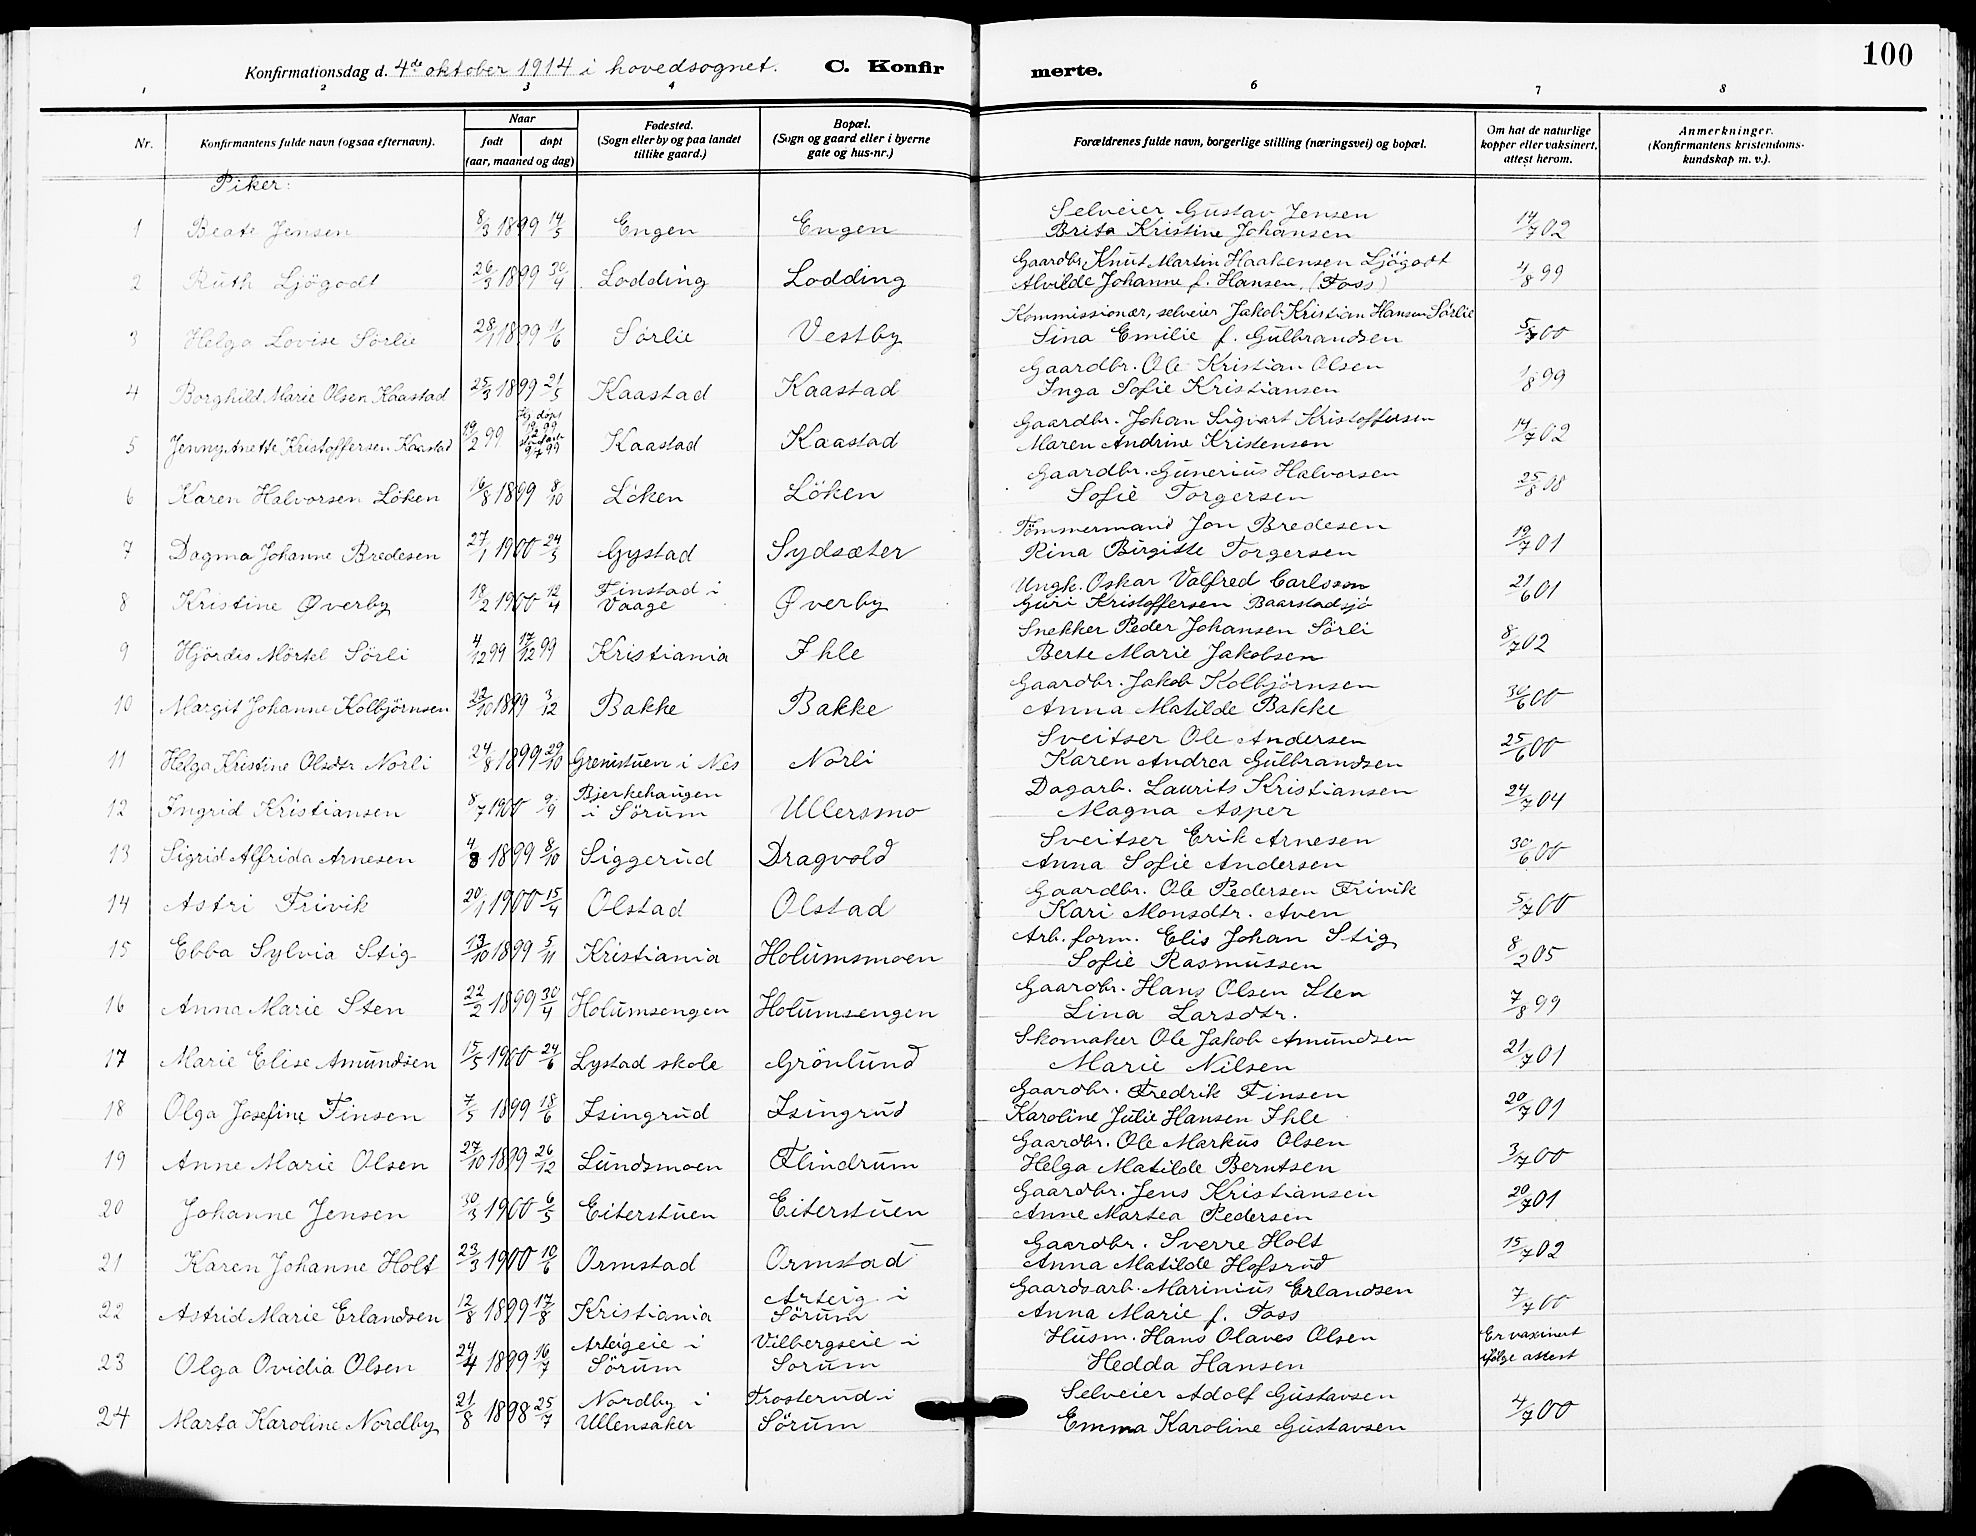 100
Konfirmationsdag d. 4de oktober 1914 i hovedsognet. C. Konfirmerte.
1 2 3 4 6 7 8
Nr. Konfirmantens fulde navn (ogsaa efternavn). Naar født døpt (aar, maaned og dag) Fødested. (Sogn eller by og paa landet tillike gaard.) Bopæl. (Sogn og gaard eller i byerne gate og hus-nr.) Forældrenes fulde navn, borgerlige stilling (næringsvei) og bopæl. Om hat de naturlige kopper eller vaksinert, attest herom. Anmerkninger. (Konfirmantens kristendomskundskap m. v.).
Piker:
Selveier Gustav Jensen
1 Beate Jensen 8/3 1899 14/5 Engen Engen Brita Kristine Johansen 14/7 02
Gaardbr. Knut Martin Haakensen Ljögodt
2 Ruth Ljögodt 26/3 1899 30/4 Lodding Lodding Alvilde Johanne f. Hansen, (Foss) 4/8 99
Kommissionær, selveier Jakob Kristian Hansen Sörlie
3 Helga Lovise Sörlie 28/1 1899 1/6 Sörlie Vestby Sina Emilie f. Gulbrandsen 5/7 00
Gaardbr. Ole Kristian Olsen
4 Borghild Marie Olsen Kaastad 25/3 1899 21/5 Kaastad Kaastad Inga Sofie Kristiansen 1/8 99
Gaardbr. Johan Sigvart Kristoffersen
5 Jenny Anette Kristoffersen Kaastad 19/2 99 Kaastad Kaastad Maren Andrine Kristensen 14/7 02
Gaardbr. Gunerius Halvorsen
6 Karen Halvorsen Löken 16/8 1899 8/10 Löken Löken Sofie Torgersen 25/8 08
Tömmermand Jon Bredesen
7 Dagma Johanne Bredesen 27/1 1900 24/5 Gystad Sydsæter Rina Birgitte Torgersen 19/7 01
Finstad i Ungk. Oskar Valfred Carlsson
8 Kristine Øverby 18/2 1900 12/4 Vaage Øverby Guri Kristoffersen Baarstadsjö 21/6 01
Snekker Peder Johansen Sörli
9 Hjördis Mörkl Sörli 4/12 99 17/12 99 Kristiania Ihle Berte Marie Jakobsen 8/7 02
Gaardbr. Jakob Kolbjörnsen
10 Margit Johanne Kolbjörnsen 22/10 1899 3/12 Bakke Bakke Anna Matilde Bakke 30/6 00
Sveitser Ole Andersen
11 Helga Kristine Olsdtr Norli 24/8 1899 29/10 Grenistuen i Nes Norli Karen Andrea Gulbrandsen 25/6 00
Bjerkehaugen Dagarb. Laurits Kristiansen
12 Ingrid Kristiansen 8/7 1900 9/9 i Sörum Ullersmo Magna Asper 24/7 04
Sveitser Erik Arnesen
13 Sigrid Alfrida Arnesen 4/8 1899 8/10 Siggerud Dragvold Anna Sofie Andersen 30/6 00
Gaardbr. Ole Pedersen Frivik
14 Astri Frivik 20/1 1900 15/4 Olstad Olstad Kari Monsdtr. Aven 5/7 00
Arb. form. Elis Johan Stig
15 Ebba Sylvia Stig 13/10 1899 5/11 Kristiania Holumsmoen Sofie Rasmussen 8/2 05
Gaardbr. Hans Olsen Sten
16 Anna Marie Sten 22/2 1899 30/4 Holumsengen Holumsengen Lina Larsdtr. 7/8 99
Skomaker Ole Jakob Amundsen
17 Marie Elise Amundsen 15/5 1900 24/6 Lystad skole Grönlund Marie Nilsen 21/7 01
Gaardbr. Fredrik Finsen
18 Olga Josefine Finsen 7/5 1899 18/6 Isingrud Isingrud Karoline Julie Hansen Ihle 20/7 01
Gaardbr. Ole Markus Olsen
19 Anne Marie Olsen 27/10 1899 26/12 Lundsmoen Flindrum Helga Matilde Berntsen 3/7 00
Gaardbr. Jens Kristiansen
20 Johanne Jensen 30/3 1900 6/5 Eiterstuen Eiterstuen Anne Martea Pedersen 20/7 01
Gaardbr. Sverre Holt
21 Karen Johanne Holt 23/3 1900 10/6 Ormstad Ormstad Anna Matilde Hofsrud 15/7 02
Arteig i Gaardsarb. Marinius Erlandsen
22 Astrid Marie Erlandsen 12/8 1899 17/8 Kristiania Sörum Anna Marie f. Foss 7/7 00
Arteigeie i Vilbergseie i Husm. Hans Olaves Olsen Er vaxinert
23 Olga Ovidia Olsen 24/4 1899 16/7 Sörum Sorum Hedda Hansen ifölge attest
Nordby i Trosterud i Selveier Adolf Gustavsen
24 Marta Karoline Nordby 21/8 1898 25/7 Ullensaker Sörum Emma Karoline Gustavsen 4/7 00